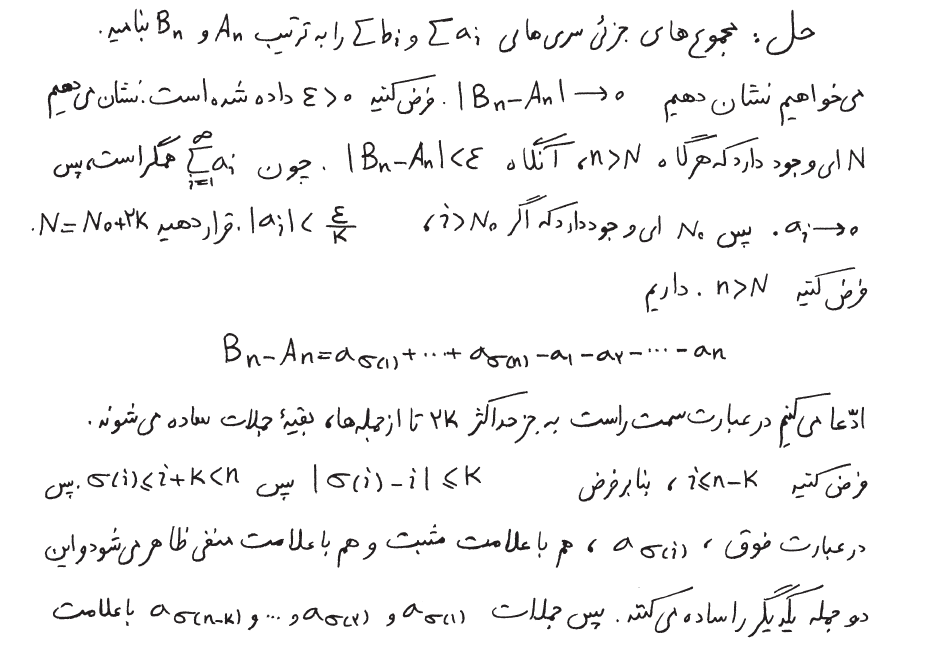 حل: مجموع های جزئی سری های ∑aᵢ و ∑bᵢ را به ترتیب Aₙ و Bₙ بنامید.
می خواهیم نشان دهیم |Bₙ-Aₙ| → ۰. فرض کنید ε>۰ داده شده است. نشان می دهیم
N ای وجود دارد که هرگاه n>N، آنگاه |Bₙ-Aₙ|<ε. چون ∑_{i=1}^{∞} aᵢ همگراست، پس
aᵢ → ۰. پس N₀ ای وجود دارد که اگر i>N₀، |aᵢ| < ε/K. قرار دهید N=N₀+۲K.
فرض کنید n>N. داریم
Bₙ-Aₙ=a_{σ(۱)}+⋯+a_{σ(n)}-a₁-a₂-⋯-aₙ
ادّعا می کنیم در عبارت سمت راست به جز حداکثر ۲K تا از جمله ها، بقیهٔ جملات ساده می شوند.
فرض کنید i≤n-K، بنابر فرض |σ(i)-i|≤K پس σ(i)≤i+K<n. پس
در عبارت فوق، a_{σ(i)}، هم با علامت مثبت و هم با علامت منفی ظاهر می شود و این
دو جمله یکدیگر را ساده می کنند. پس جملات a_{σ(۱)} و a_{σ(۲)} و ... و a_{σ(n-K)} با علامت